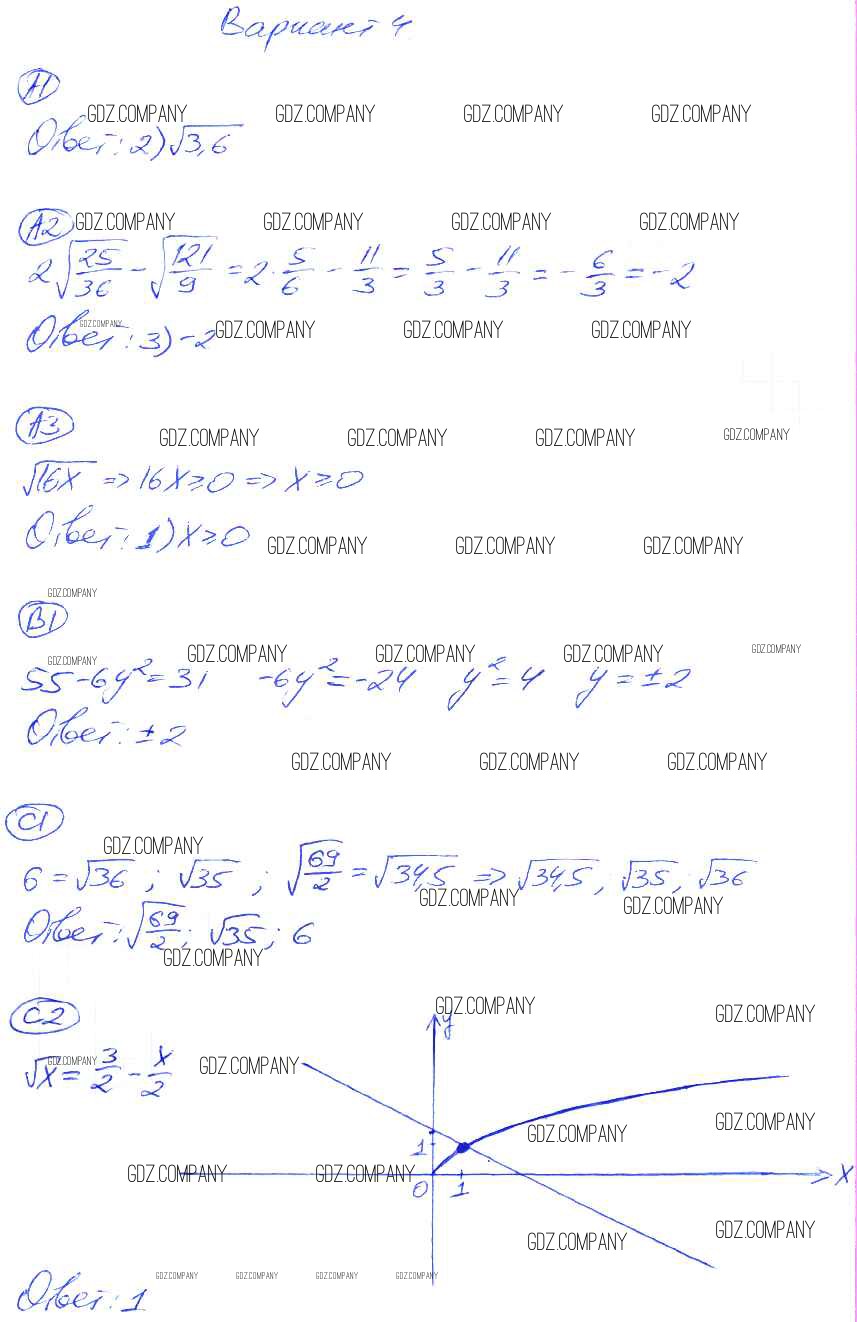 Вариант 4
А1
GDZ.COMPANY GDZ.COMPANY GDZ.COMPANY GDZ.COMPANY
Ответ: 2) √3,6
А2 GDZ.COMPANY GDZ.COMPANY GDZ.COMPANY GDZ.COMPANY
2√(25/36) - √(121/9) = 2·5/6 - 11/3 = 5/3 - 11/3 = -6/3 = -2
GDZ.COMPANY GDZ.COMPANY GDZ.COMPANY GDZ.COMPANY
Ответ: 3) -2
А3
GDZ.COMPANY GDZ.COMPANY GDZ.COMPANY GDZ.COMPANY
√16x => 16x ≥ 0 => x ≥ 0
Ответ: 1) x ≥ 0
GDZ.COMPANY GDZ.COMPANY GDZ.COMPANY
GDZ.COMPANY
В1
GDZ.COMPANY GDZ.COMPANY GDZ.COMPANY GDZ.COMPANY GDZ.COMPANY
55 - 6y² = 31 -6y² = -24 y² = 4 y = ±2
Ответ: ±2
GDZ.COMPANY GDZ.COMPANY GDZ.COMPANY
С1
GDZ.COMPANY
6 = √36 ; √35 ; √(69/2) = √34,5 => √34,5, √35, √36
GDZ.COMPANY GDZ.COMPANY
Ответ: √(69/2); √35; 6
GDZ.COMPANY
С2
GDZ.COMPANY GDZ.COMPANY
y
GDZ.COMPANY GDZ.COMPANY
√x = 3/2 - x/2
GDZ.COMPANY GDZ.COMPANY
1
GDZ.COMPANY GDZ.COMPANY x
0 1
GDZ.COMPANY GDZ.COMPANY
GDZ.COMPANY GDZ.COMPANY GDZ.COMPANY GDZ.COMPANY
Ответ: 1